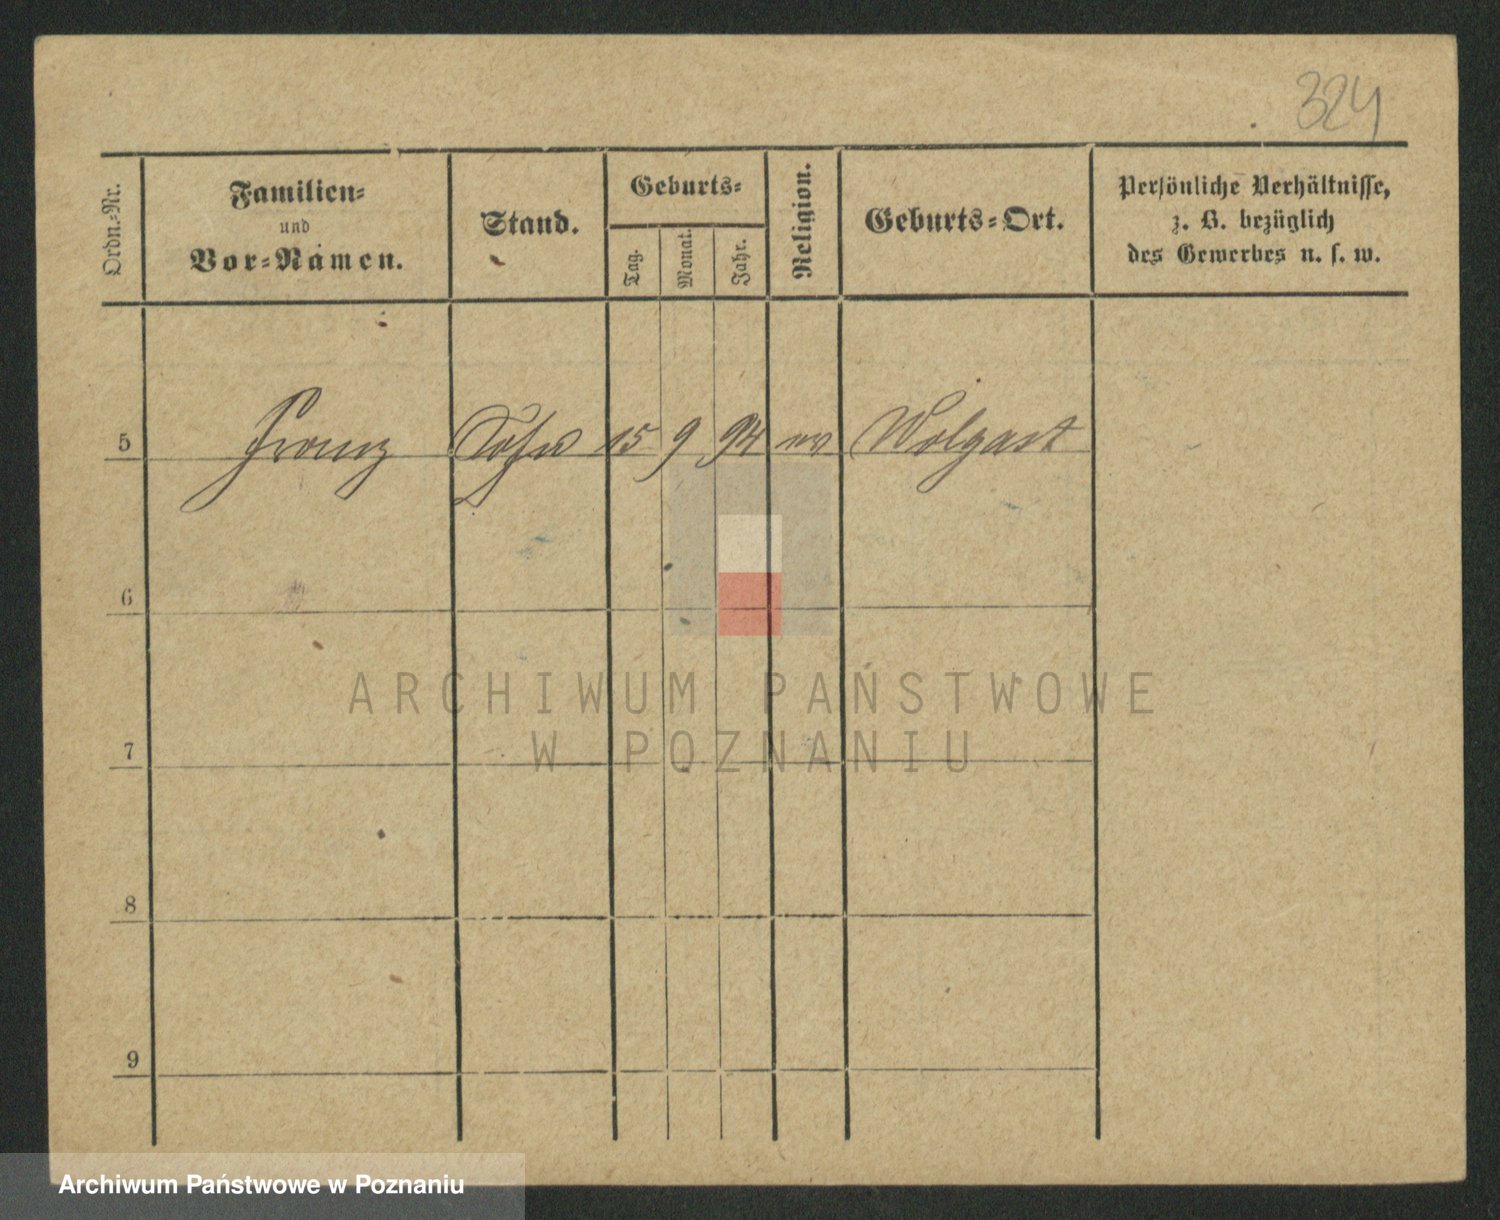 324
Ordn.-Nr.
Familien-
und
Vor-Namen.
Stand.
Geburts-
Tag.
Monat.
Jahr.
Religion.
Geburts-Ort.
Persönliche Verhältnisse,
z. B. bezüglich
des Gewerbes u. s. w.
5 Franz Sohn 15 9 94 ev Wolgast
6
7
8
9
ARCHIWUM PAŃSTWOWE
W POZNANIU
Archiwum Państwowe w Poznaniu